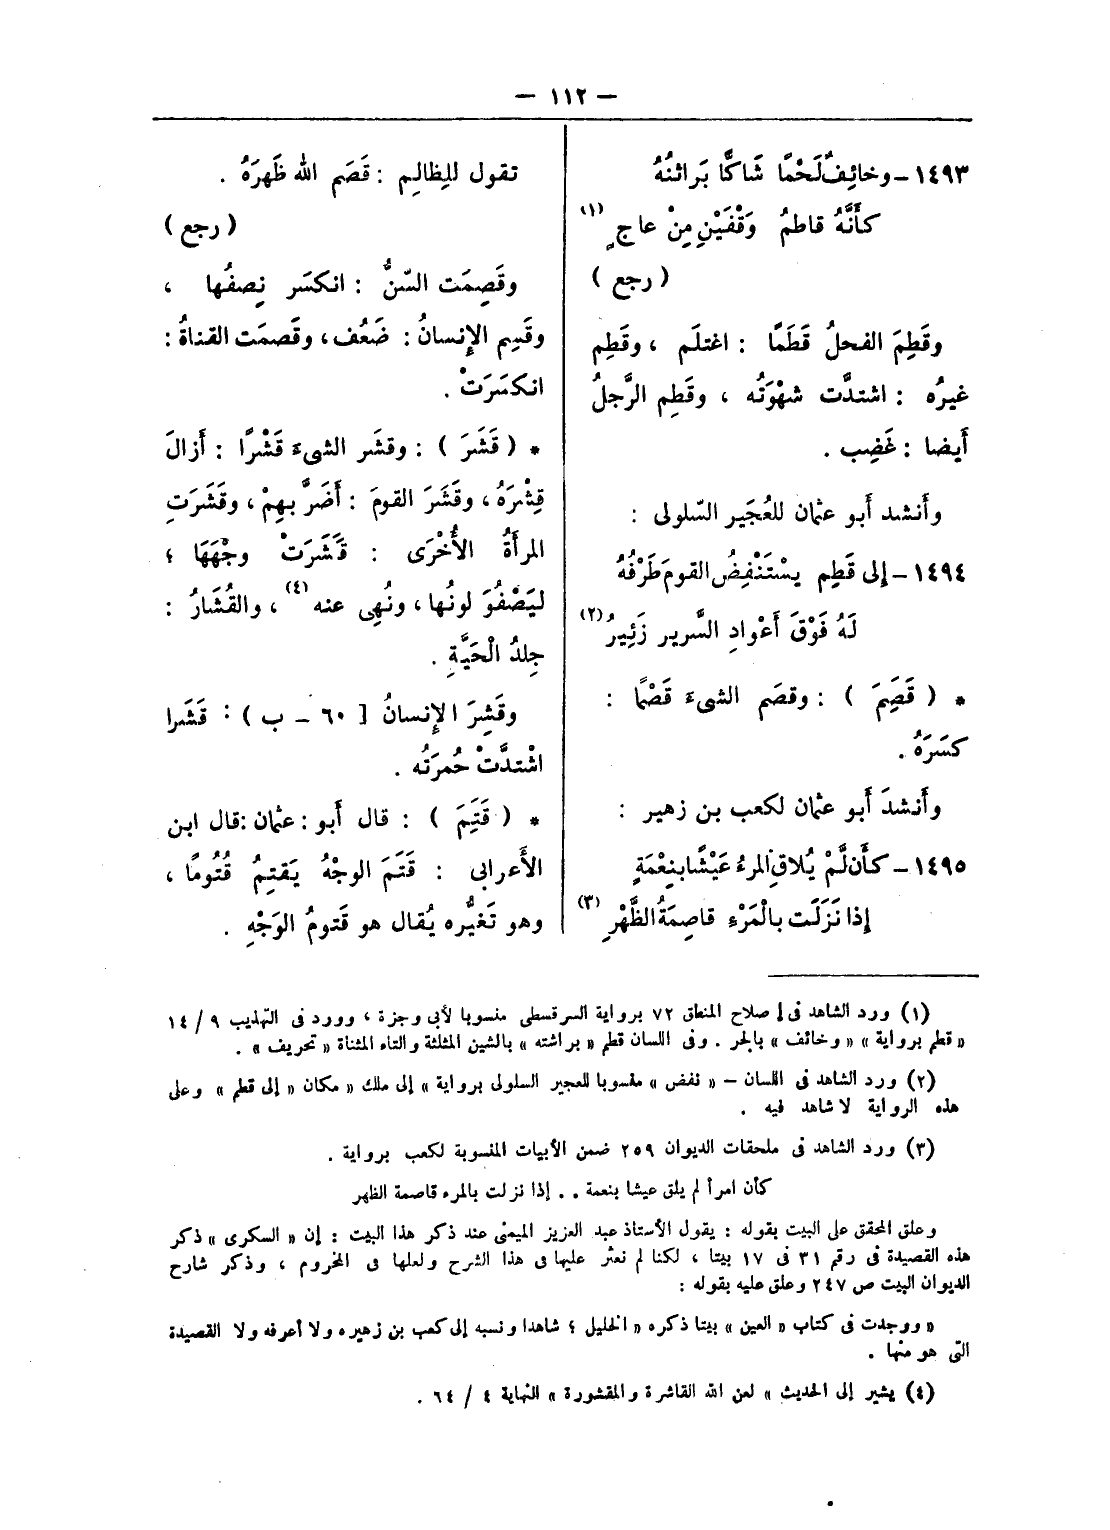 – ١١٢ –
١٤٩٣ – وخائِفٌ لَحْمًا شَاكًّا بَرَاثنُهُ
كأَنَّهُ قاطمُ وَقْفَيْنِ مِنْ عاجٍ (١)
( رجع )
وقَطِمَ الفحلُ قَطَمًا : اغتلَم ، وقَطِم
غيرُه : اشتدَّت شهْوَتُه ، وقَطِم الرَّجلُ
أَيضا : غَضِب .
وأَنشد أَبو عثمان للعُجَير السّلولى :
١٤٩٤ – إلى قَطِم يسْتَنْفِضُ القومَ طَرْفُهُ
لَهُ فَوْقَ أَعْوادِ السَّرير زَئِيرُ (٢)
* ( قَصَِمَ ) : وقصَم الشىءَ قَصْمًا :
كسَرَهُ .
وأَنشدَ أَبو عثمان لكعب بن زهير :
١٤٩٥ – كأَن لَّمْ يُلاقِ المرءُ عَيْشًا بنِعْمَةٍ
إذا نَزَلَت بالْمَرْءِ قاصِمَةُ الظَّهْرِ (٣)
تقول للِظالِم : قَصَم اللهُ ظَهرَهُ .
( رجع )
وقَصِمَت السّنُّ : انكسَر نِصفُها ،
وقَسِم الإنسانُ : ضَعُف ، وقَصمَت القناةُ :
انكسَرَتْ .
* ( قَشَِرَ ) : وقشَر الشىءَ قَشْرًا : أَزالَ
قِشْرَهُ ، وقَشَرَ القومَ : أَضَرَّ بهِمْ ، وقَشَرَتِ
المرأَةُ الأُخْرَى : قَشَرَتْ وجْهَهَا ؛
ليَصْفُوَ لونُها ، ونُهِى عنه (٤) ، والقُشَارُ :
جِلدُ الْحَيَّةِ .
وقَشِرَ الإنسانُ [ ٦٠ – ب ) : قَشَرا
اشْتدَّتْ حُمرَتُه .
* ( قَتَِمَ ) : قال أَبو : عثمان : قال ابن
الأَعرابى : قَتَمَ الوجْهُ يَقتِمُ قُتُومًا ،
وهو تَغيُّره يُقال هو قَتومُ الوَجْهِ .
(١) ورد الشاهد فى إصلاح المنطق ٧٢ برواية السرقسطى منسوبا لأبى وجزة ، وورد فى التهذيب ٩ / ١٤
« قطم برواية » « وخائف » بالجر . وفى اللسان قطم « براشته » بالشين المثلثة والتاء المثناة « تحريف » .
(٢) ورد الشاهد فى اللسان – « نفض » منسوبا للعجير السلولى برواية » إلى ملك « مكان » إلى قطم » وعلى
هذه الرواية لا شاهد فيه .
(٣) ورد الشاهد فى ملحقات الديوان ٢٥٩ ضمن الأبيات المنسوبة لكعب برواية .
كأن امرأ لم يلق عيشا بنعمة . . إذا نزلت بالمرء قاصمة الظهر
وعلق المحقق على البيت بقوله : يقول الأستاذ عبد العزيز الميمنى عند ذكر هذا البيت : إن « السكرى » ذكر
هذه القصيدة فى رقم ٣١ فى ١٧ بيتا ، لكنا لم نعثر عليها فى هذا الشرح ولعلها فى المخروم ، وذكر شارح
الديوان البيت ص ٢٤٧ وعلق عليه بقوله :
« ووجدت فى كتاب « العين » بيتا ذكره « الخليل ؛ شاهدا ونسبه إلى كعب بن زهيره ولا أعرفه ولا القصيدة
التى هو منها .
(٤) يشير إلى الحديث » لعن الله القاشرة والمقشورة » النهاية ٤ / ٦٤ .